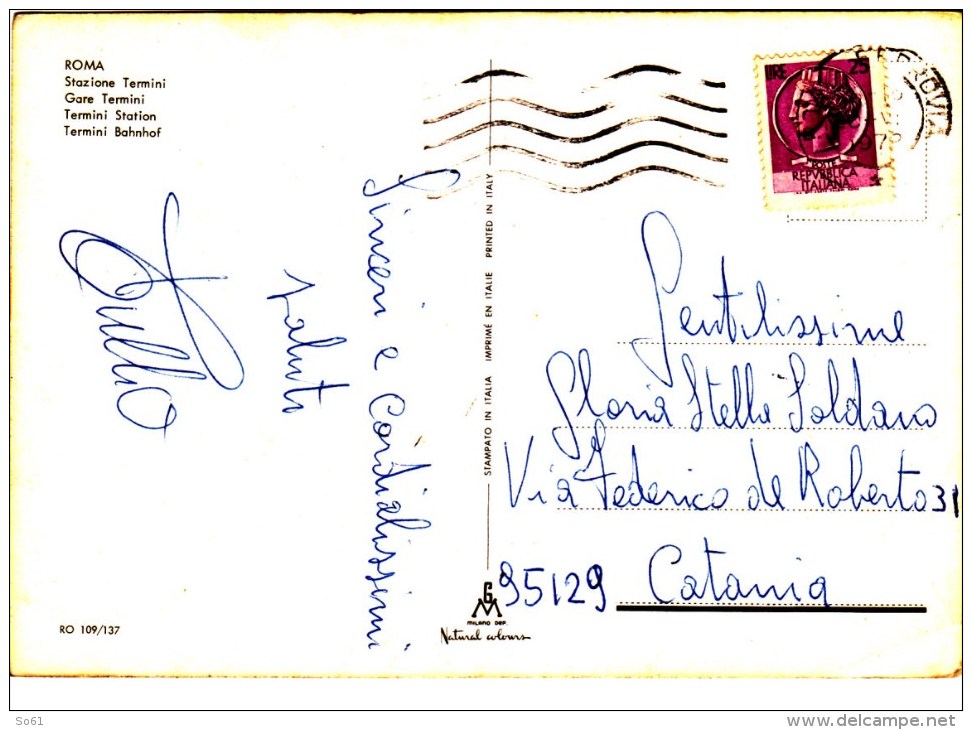 ROMA
Stazione Termini
Gare Termini
Termini Station
Termini Bahnhof
Sinceri e Cordialissimi
saluti
Tullio
RO 109/137
STAMPATO IN ITALIA IMPRIMÉ EN ITALIE PRINTED IN ITALY
GM
MILANO DEP.
Natural colours
LIRE 25
POSTE
REPVBBLICA
ITALIANA
Gentilissime
Gloria Stella Soldano
Via Federico de Roberto 31
95129 Catania
So61
www.delcampe.net